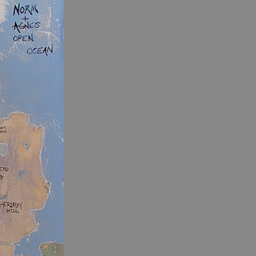 NORM
+
AGNES
OPEN
OCEAN
HILL